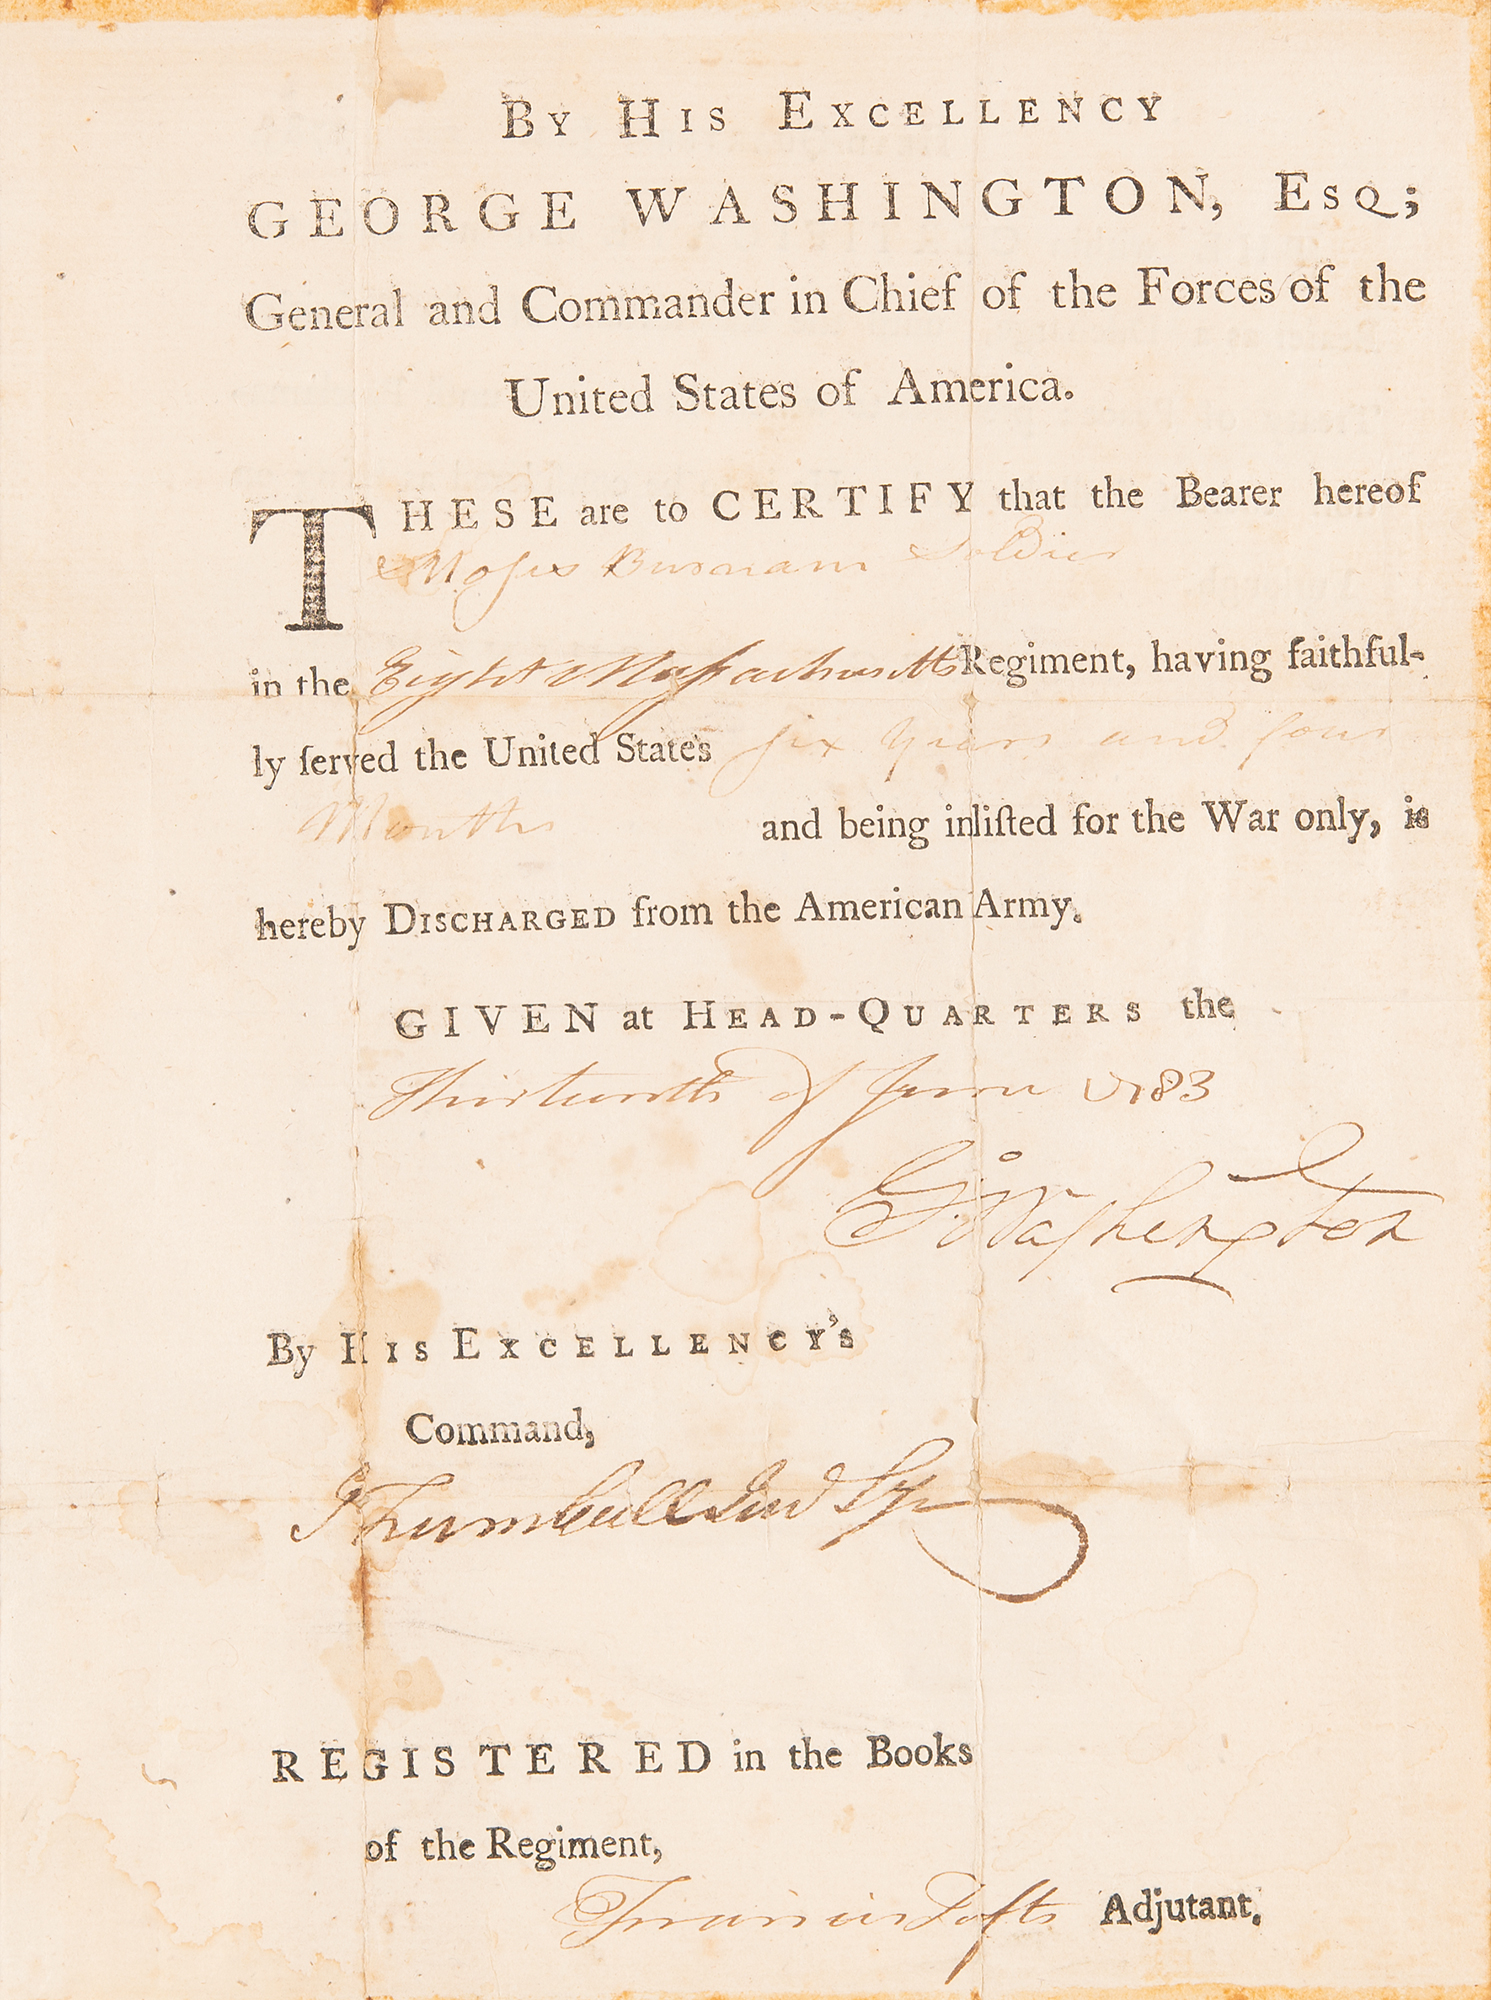 By His Excellency
GEORGE WASHINGTON, Esq;
General and Commander in Chief of the Forces of the
United States of America.
THESE are to CERTIFY that the Bearer hereof
Moſes Burnam Soldier
in the Eight Maſsachusetts Regiment, having faithful-
ly ſerved the United States six years and four
Months and being inliſted for the War only, is
hereby Discharged from the American Army.
GIVEN at Head-Quarters the
Thirteenth of June 1783
G:Washington
By His Excellency's
Command,
J Trumbull Jun Sy
REGISTERED in the Books
of the Regiment,
Francis Tufts Adjutant.